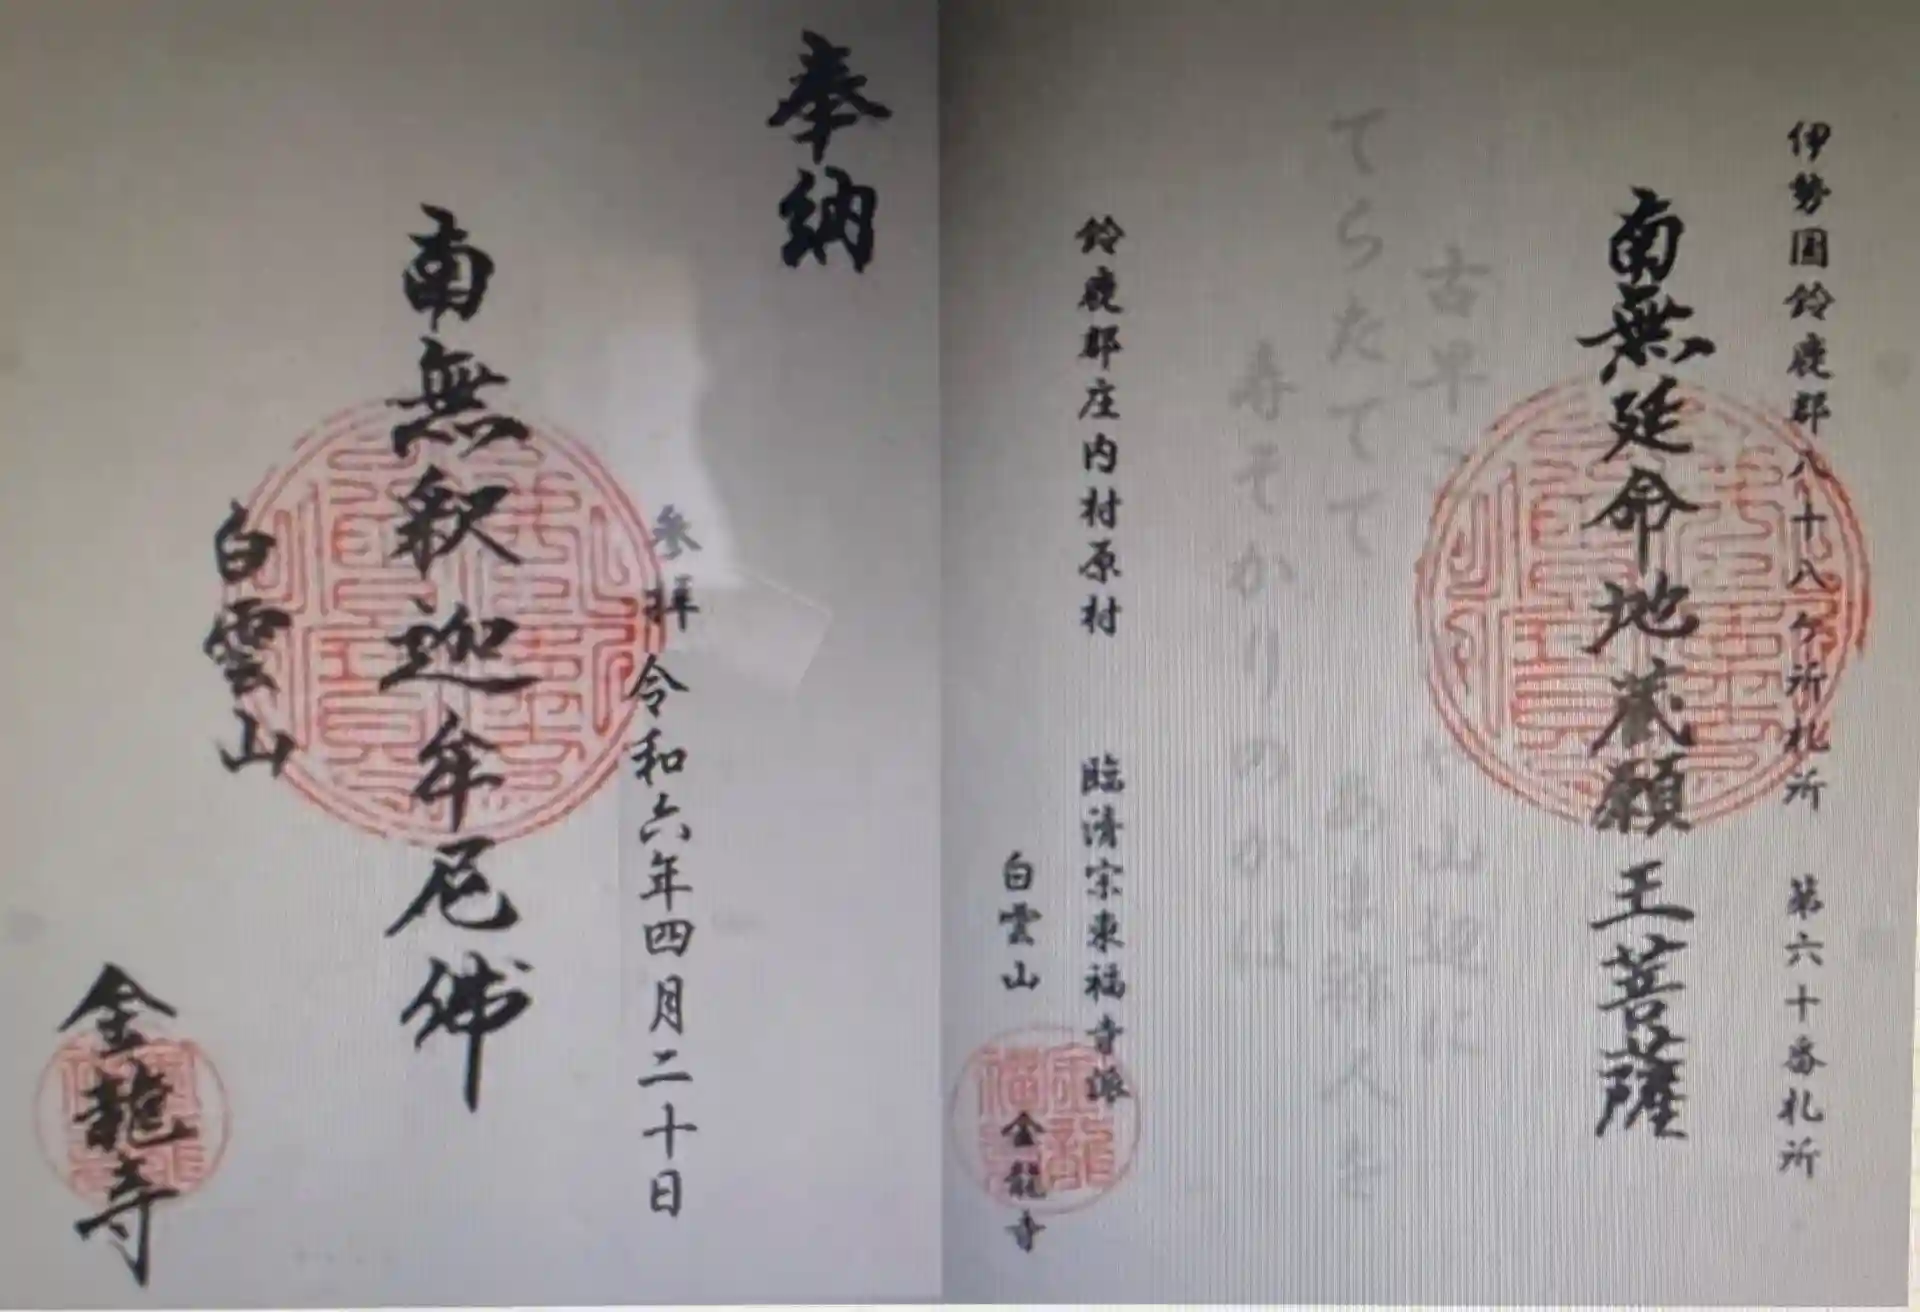 奉納
参拝 令和六年四月二十日
南無釈迦牟尼佛
白雲山
金龍寺
伊勢国鈴鹿郡八十八ヶ所札所 第六十番札所
南無延命地蔵願王菩薩
てらたてて
寿そかりの
鈴鹿郡庄内村原村 臨済宗東福寺派
白雲山 金龍寺